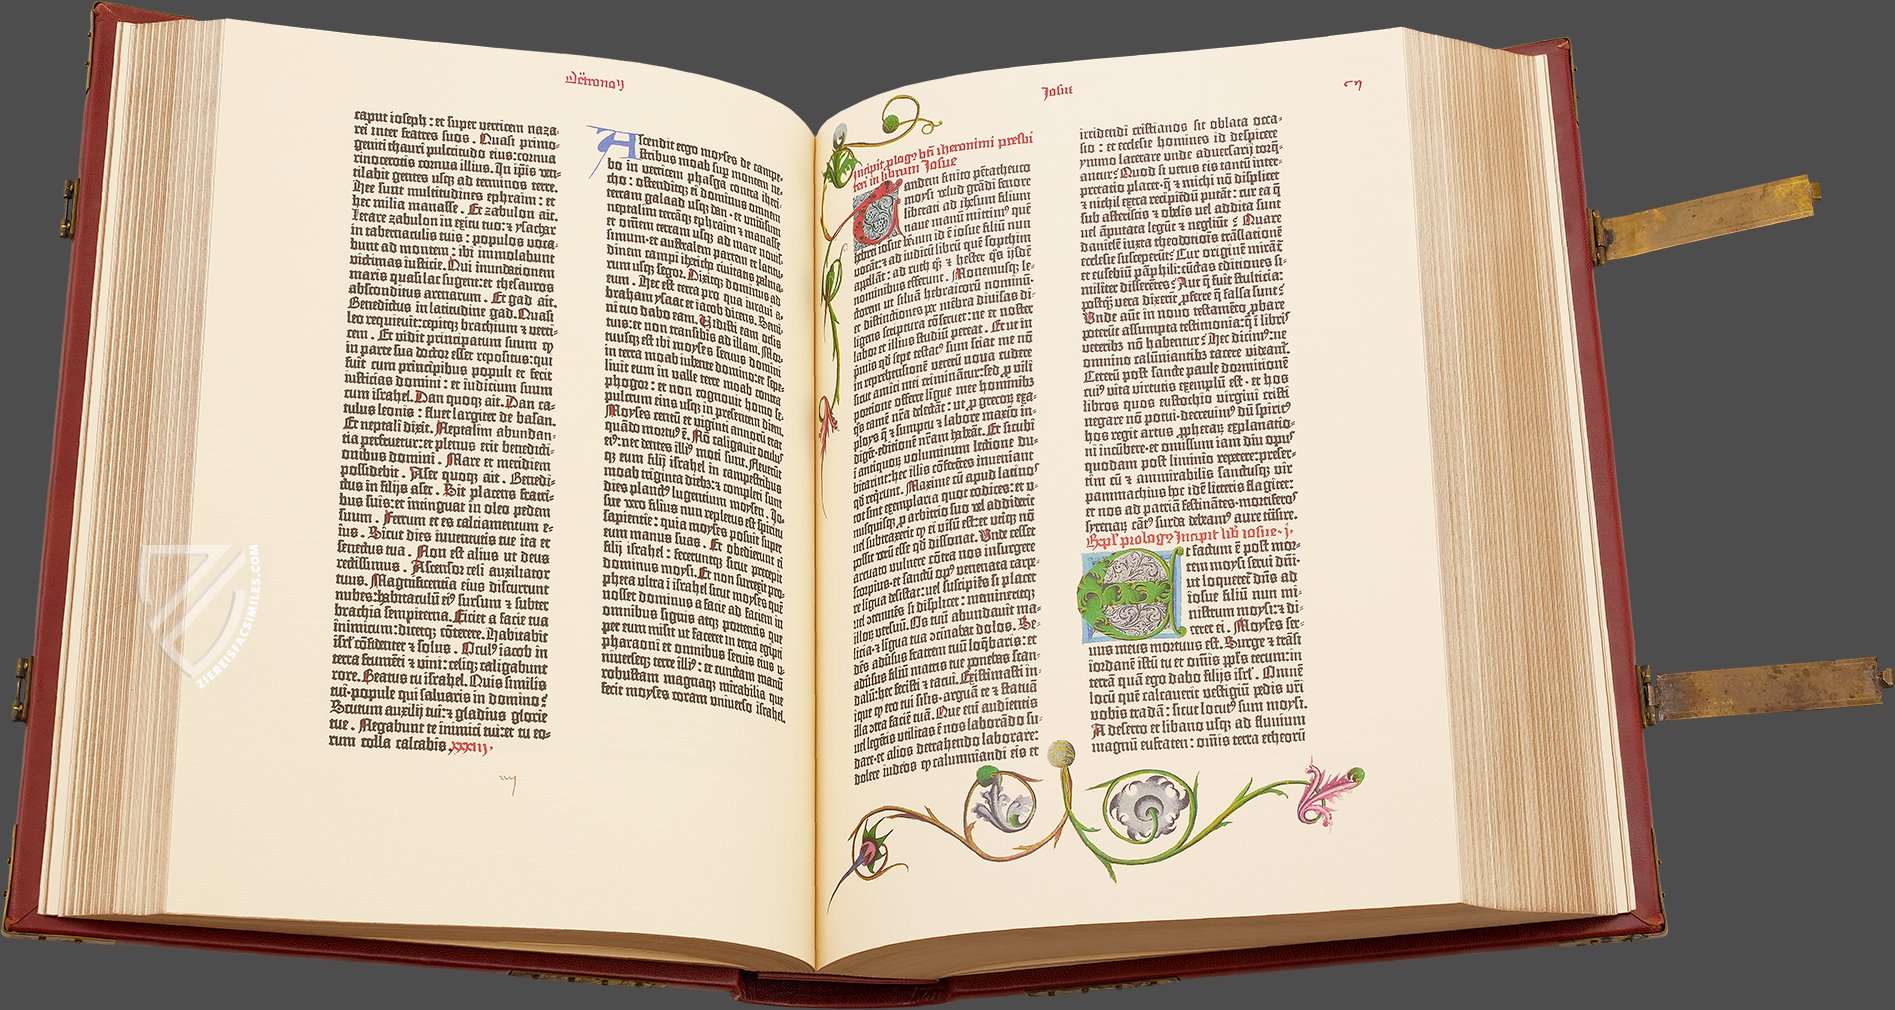 Deutronomii
caput ioseph: et super verticem naza-
rei inter fratres suos. Quasi primo-
geniti thauri pulcritudo eius: cornua
rinocerotis cornua illius. In ipis ven-
tilabit gentes usq; ad terminos terre.
Hee sunt multitudines ephraim: et
hec milia manasse. Et zabulon ait.
Letare zabulon in exitu tuo: et ysachar
in tabernaculis tuis: populos voca-
bunt ad montem: ibi immolabunt
victimas iusticie. Qui inundationem
maris quasi lac sugent: et thesauros
absconditos arenarum. Et gad ait.
Benedictus in latitudine gad. Quasi
leo requievit: cepitq; brachium et verti-
cem. Et vidit principatum suum q
in parte sua doctor esset repositus: qui
fuit cum principibus populi et fecit
iusticias domini: et iudicium suum
cum israhel. Dan quoq; ait. Dan ca-
tulus leonis: fluet largiter de basan.
Et neptali dixit. Neptalim abundan-
tia perfruetur: et plenus erit benedicti-
onibus domini. Mare et meridiem
possidebit. Aser quoq; ait. Benedi-
ctus in filijs aser. Sit placens fratri-
bus suis: et intinguat in oleo pedem
suum. Ferrum et es calciamentum e-
ius. Sicut dies iuventutis tue ita et
senectus tua. Non est alius ut deus
rectissimus. Ascensor celi auxiliator
tuus. Magnificentia eius discurrunt
nubes: habitaculū ei⁹ sursum et subter
brachia sempiterna. Eiciet a facie tua
inimicum: dicetq; cōterere. Habitabit
isrl cōfidenter et solus. Ocul⁹ iacob in
terra frumēti et vini: celiq; caligabunt
rore. Beatus tu israhel. Quis similis
tui popule qui salvaris in domino?
Scutum auxilij tui: et gladius glorie
tue. Negabunt te inimici tui: et tu eo-
rum colla calcabis. xxxiiij.
Ascendit ergo moyses de campe-
stribus moab sup montem ne-
bo in verticem phasga contra iheri-
cho: ostenditq; ei dominus omnem
terram galaad usq; dan: et univsum
neptalim terrāq; ephraim et manasse
et omēm terram usq; ad mare novis-
simum: et australem partem et latitu-
dinem campi ihericho civitatis palma-
rum usq; segor. Dixitq; dominus ad
eum. Hec est terra pro qua iuravi a-
braham ysaac et iacob dicens. Semi-
ni tuo dabo eam. Vidisti eam oclis
tuis: et non transibis ad illam. Mor-
tuusq; est ibi moyses servus domini
in terra moab iubente domino: et sepe-
livit eum in valle terre moab contra
phogor: et non cognovit homo se-
pulcrum eius usq; in presentem diem.
Moyses centū et viginti annorū erat
quādo mortu⁹ ē. Nō caligavit oculus
ei⁹: nec dentes illi⁹ moti sunt. Fleverūt
q; eum filij israhel in campestribus
moab triginta dieb;: et completi sunt
dies planct⁹ lugentium moysen. Io-
sue vero filius nun repletus est spiritu
sapientie: quia moyses posuit super
eum manus suas. Et obedierunt ei
filij israhel: feceruntq; sicut precepit
dominus moysi. Et non surrexit pro-
pheta ultra ī israhel sicut moyses quē
nosset dominus a facie ad faciem in
omnibus signis atq; portentis que
per eum misit ut faceret in terra egipti
pharaoni et omnibus servis eius u-
niverseq; terre illi⁹: et cunctam manū
robustam magnaq; mirabilia que
fecit moyses coram universo israhel.
Iosue
Incipit plog⁹ bti iheronimi presbi
teri in librum Iosue
Tandem finito pētatheuco
moysi velud grādi fenore
liberati ad ihesum filium
nave manū mittim⁹ quē
hebrei iosue bennun id ē iosue filiū nun
vocāt: et ad iudicū librū quē sopthim
apellāt: ad ruth q; et hester q̄s ijsdē
nominibus efferunt. Monemusq; le-
ctorem ut silvā hebraicorū nominū
et distinctiones p mēbra divisas di-
ligens scriptura cōservet: ne et noster
labor et illius studiū pereat. Et ut in
primis qd sepe testat⁹ sum sciat me nō
in reprehensionē veterū nova cudere
sicut amici mei criminātur: sed p virili
portione offerre ligue mee hominib;
q̄s tamē nr̄a delectāt: ut p grecor⁊ exa-
ploys q̄ et sumptu et labore maxīo in-
digēt editionē nr̄am habeāt. Et sicubi
ī antiquor⁊ voluminum lectione du-
bitarint: hec illis cōferētes inveniant
qd reqrunt. Maxime cū apud latinos
tot sint exemplaria quot codices: et u-
nusquisq; p arbitrio suo vel addiderit
vel subtraxerit qd ei visū est: et utiq; nō
possit verū esse qd dissonat. Unde cesset
arcuato vulnere cōtra nos insurgere
scorpius: et sanctū op⁹ venenata carpe-
re ligua desistat: vel suscipiēs si placet
vel cōtemnēs si displicet: memineritq;
illor⁊ versuū. Os tuū abundavit ma-
licia: et līgua tua ɔcinabat dolos. Se-
dēs adv̄sus fratrem tuū loq̄baris: et
adv̄sus filiū matris tue ponebas scan-
dalū: hec fecisti et tacui. Existimasti in-
ique qd ero tui silis: arguā te et statuā
illa ɔtra faciē tuā. Que eni audientis
vel legētis utilitas ē nos laborādo su-
dare: et alios detrahendo laborare:
dolere iudeos q calumniandi eis et
irridendi cristianos sit oblata occa-
sio: et ecclesie homines id despicere
ymmo lacerare unde adversarij torq̄-
antur? Quod si vetus eis tantū inter-
pretatio placet: q̄ et michi nō displicet
et nichil extra recipiēdū putāt: cur ea q̄
sub asteriscis et obelis vel addita sunt
vel āputata legūt et negligūt? Quare
danielē iuxta theodotionis trāslationē
ecclesie susceperūt? Cur originē mirāt
et eusebiū pāphili: cūctas editiones si-
militer disserētes? Aut q̄ fuit stulticia:
postq̄ vera dixerīt pferre q̄ falsa sunt?
Unde aūt in novo testamēto pbare
poterūt assumpta testimonia: q̄ ī libris
veterib; nō habentur? Hec dicim⁹: ne
omnino calūniantib; tacere videamr.
Ceterū post sancte paule dormitionē
cui⁹ vita virtutis exemplū est: et hos
libros quos eustochio virgini cristi
negare nō potui: decrevim⁹ dū spirit⁹
hos regit artus pphetar⁊ explanatio-
ni īcūbere: et omissum iam diu opus
quodam post liminio repetere: preser-
tim cū et ammirabilis sanctusq; vir
pammachius hoc idē litteris flagitet:
et nos ad patriā festinātes: mortiferos
syrenar⁊ cāt⁹ surda debeam⁹ aure trāsire.
Expl' prolog⁹ Incipit lib' iosue. j.
Et factum ē post mor-
tem moysi servi dn̄i:
ut loqueret dn̄s ad
iosue filiū nun mi-
nistrum moysi: et di-
ceret ei. Moyses ser-
vus meus mortuus est. Surge et trāsi
iordanē istū tu et om̄is ppl's tecum: in
terrā quā ego dabo filijs isrl'. Omnē
locū quē calcaverit vestigiū pedis vr̄i
vobis tradā: sicut locut⁹ sum moysi.
A deserto et libano usq; ad fluvium
magnū eufraten: om̄is terra etheorū
ZIEREISFACSIMILES.COM